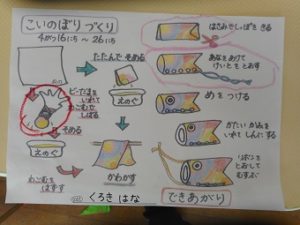 こいのぼりづくり
4がつ16にち〜26にち
たたんで そめる
ビー玉を
いれて
わごむで
しばる
そめる
えのぐ
えのぐ
わごむを
はずす
かわかす
はさみで しっぽを きる
あなをあけ
けいとを とおす
めを つける
かたい かみを
いれて しんに する
リボンを
とおして
むすぶ
できあがり
くろき はな